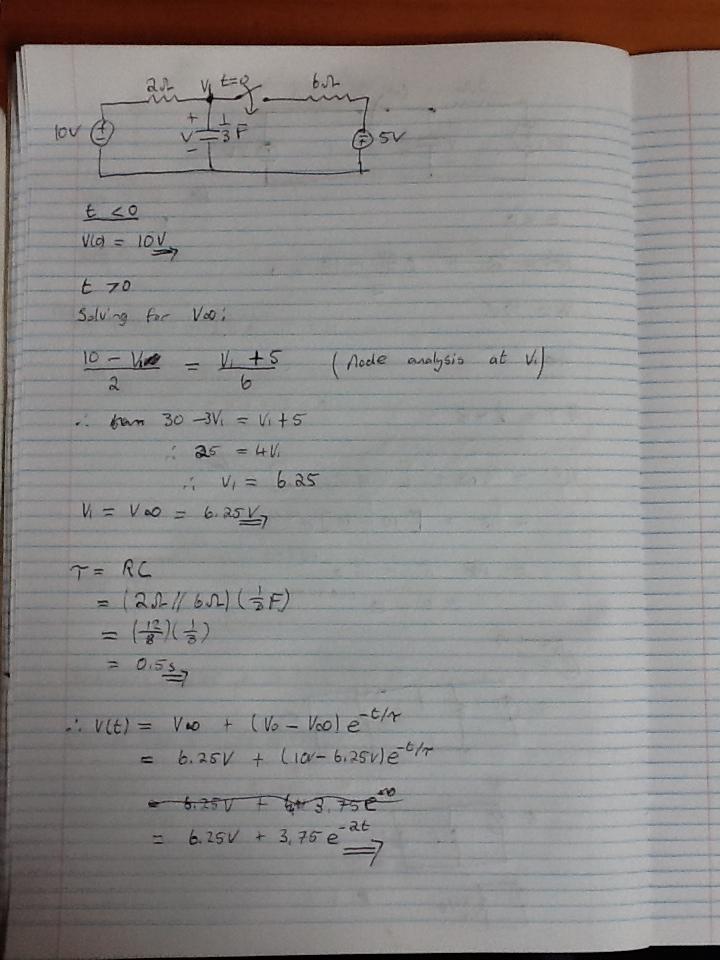 2Ω V₁ t=0 6Ω
10V + - + V - 1/3 F 5V
t < 0
V(0) = 10V
t > 0
Solving for V∞:
10 - V₁ / 2 = V₁ + 5 / 6 (Node analysis at V₁)
∴ 30 - 3V₁ = V₁ + 5
∴ 25 = 4V₁
∴ V₁ = 6.25
V₁ = V∞ = 6.25V
τ = RC
= (2Ω // 6Ω)(1/3 F)
= (12/8)(1/3)
= 0.5s
∴ V(t) = V∞ + (V₀ - V∞) e^-t/τ
= 6.25V + (10V - 6.25V) e^-t/τ
= 6.25V + 3.75 e
= 6.25V + 3.75 e^-2t